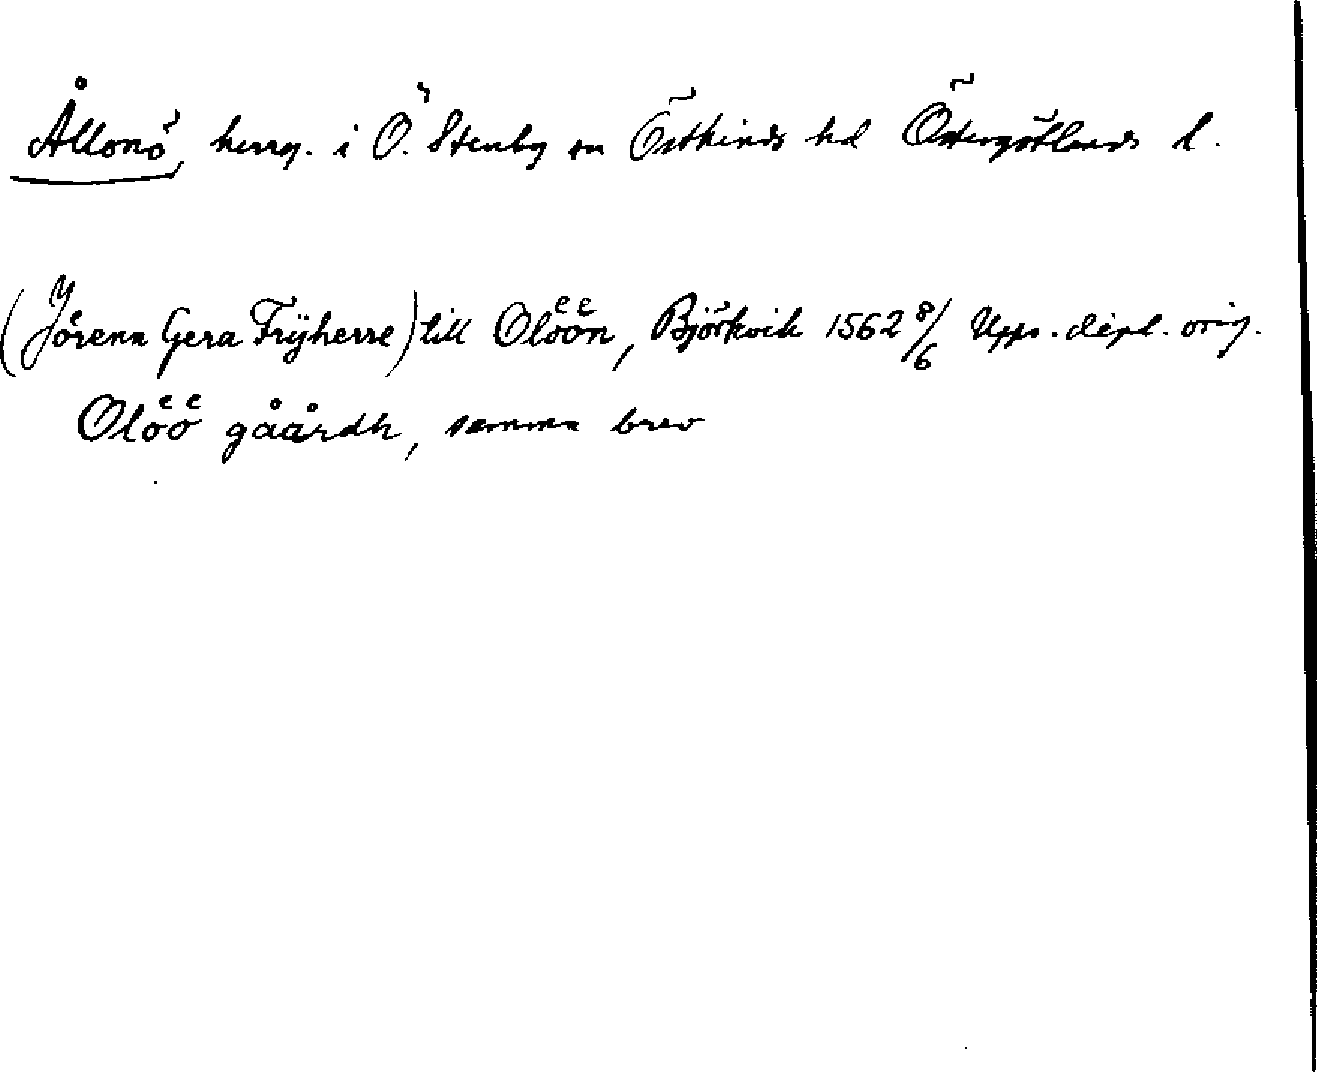 Ållonö, herrg. i Ö. Stenby sn Östkinds hd Östergötlands l.
(Jörenn Gera Frÿherre) till Oloͤoͤn, Björkvik 1562 8/6 Upps. dipl. orig.
Oloͤoͤ gåårdh, samma brev